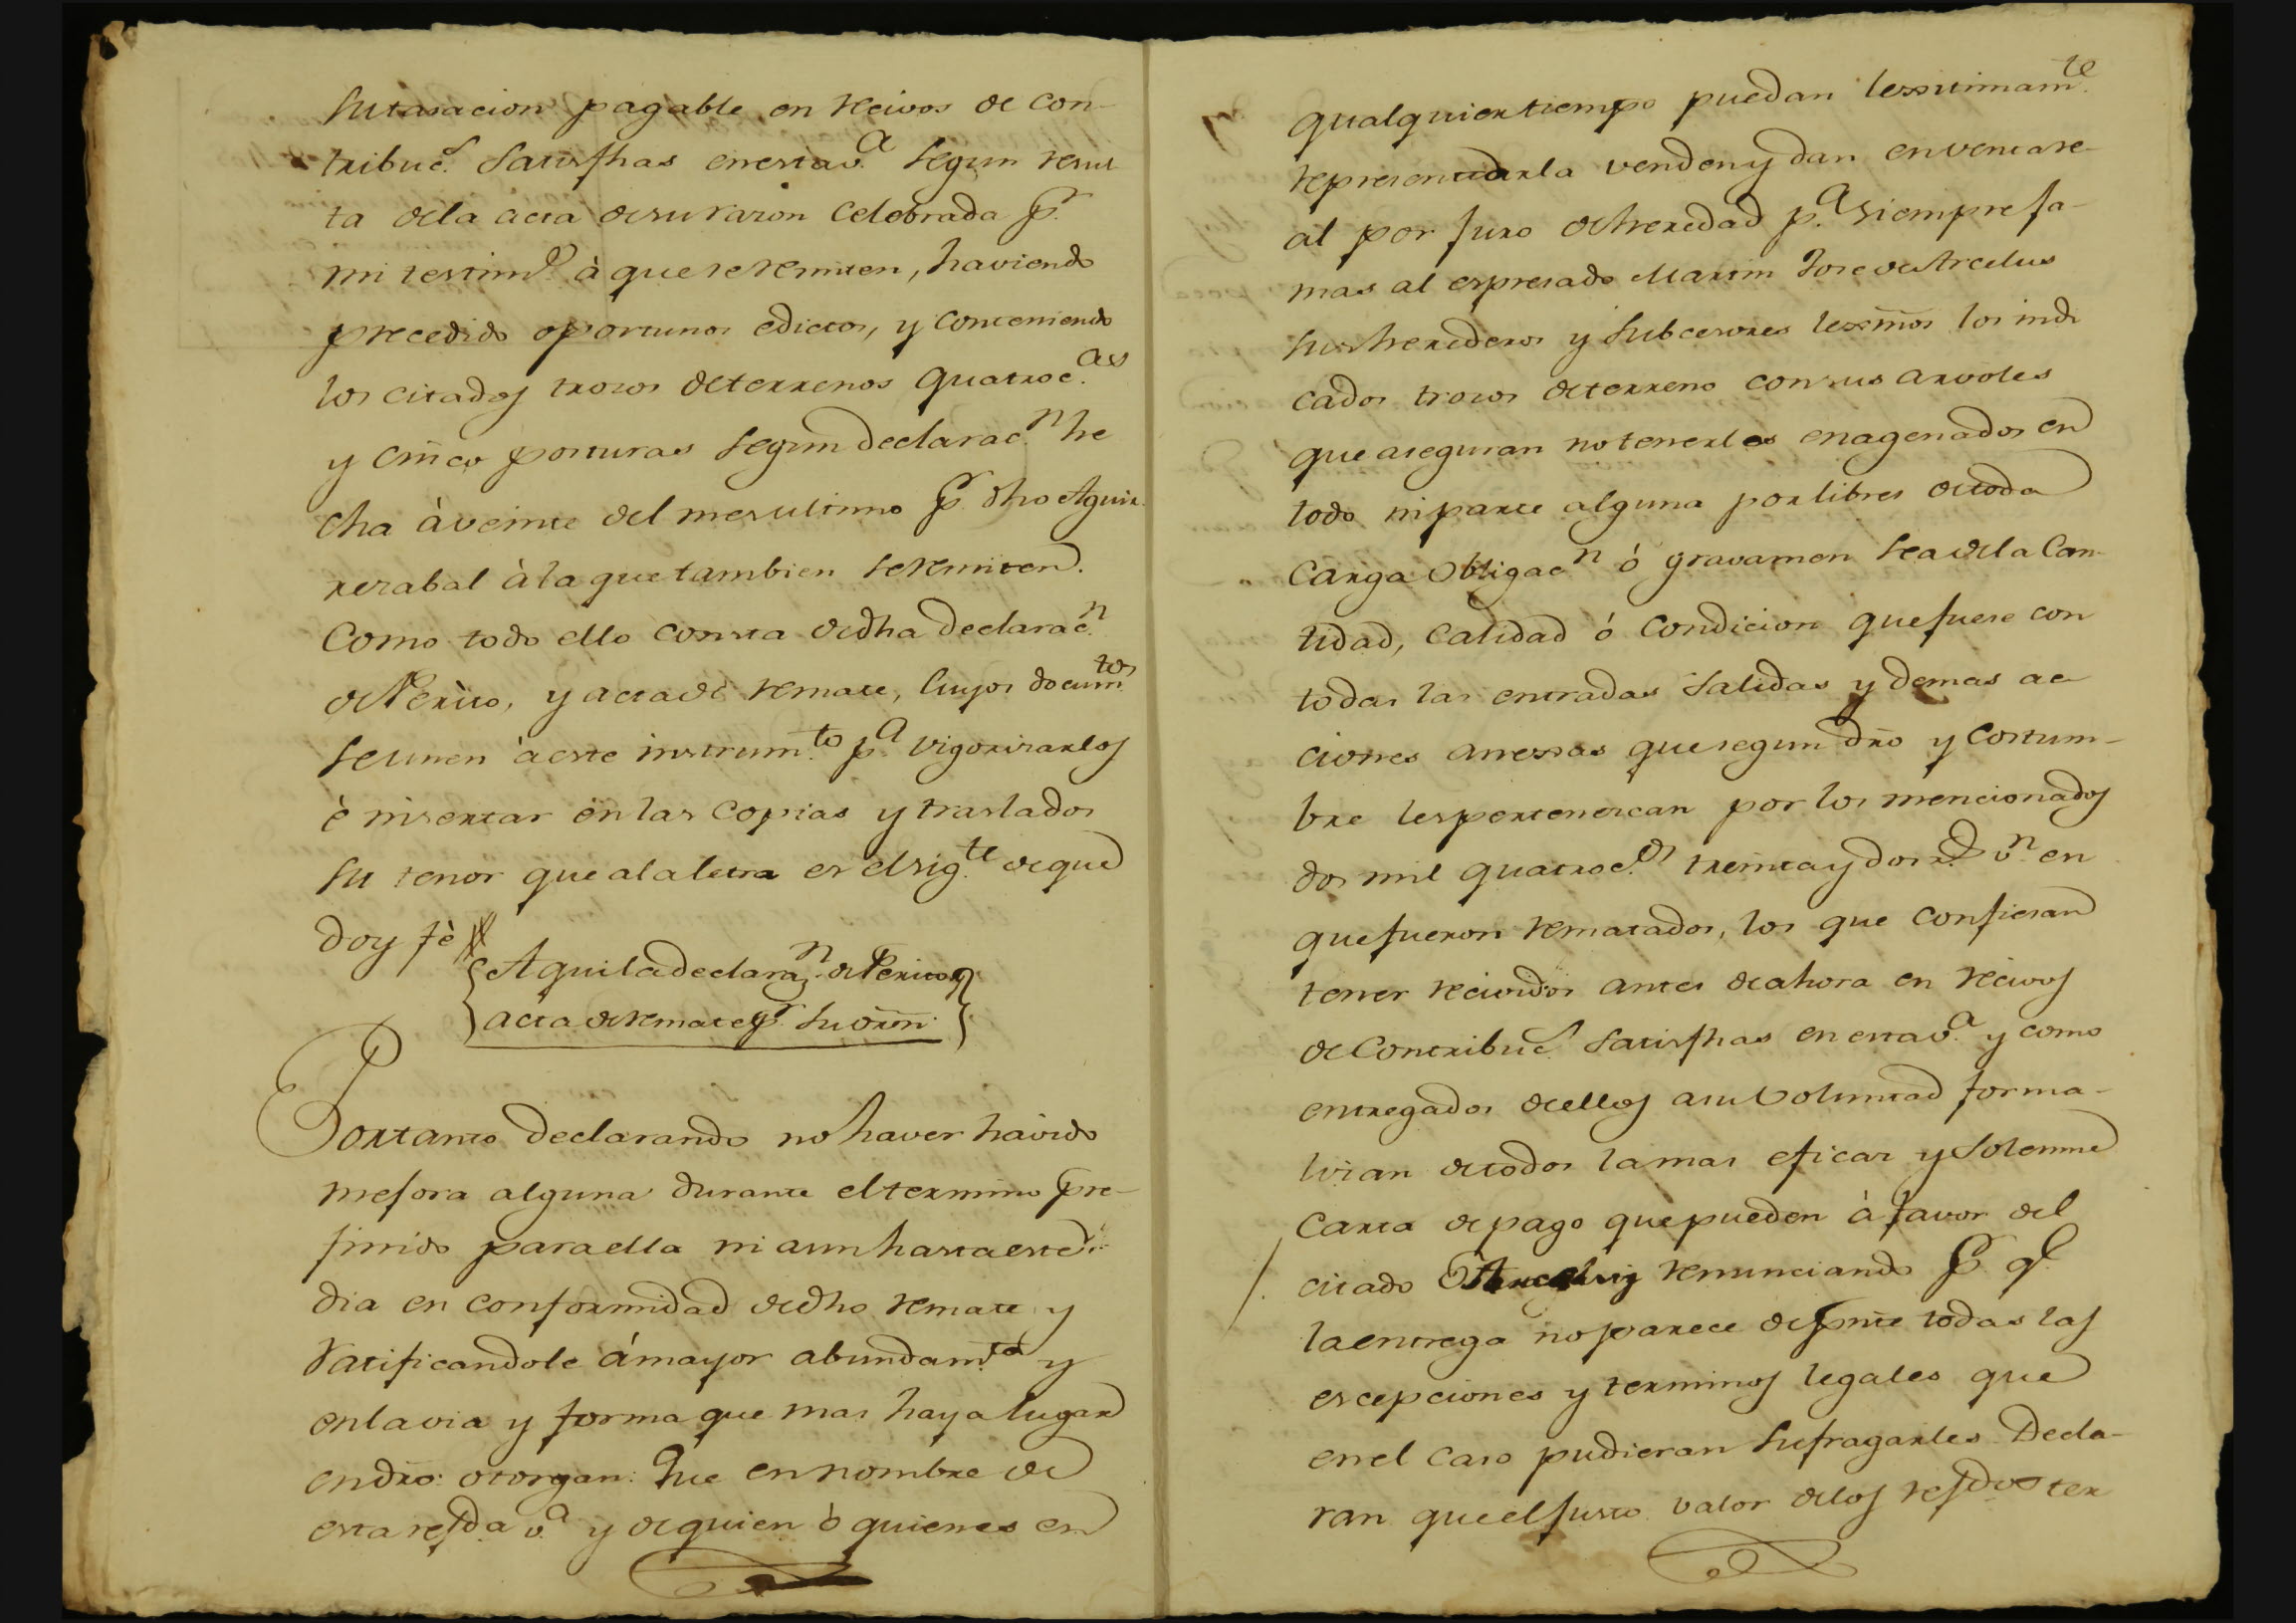 su tasacion pagable en recivos de con-
tribuc.s satisfhas en esta v.a segun resul
ta de la acta de su razon celebrada p.r
mi testim.o à que se remiten, haviendo
precedido oportunos edictos, y conteniendo
los citados trozos de terrenos quatroc.as
y cinco posturas segun declarac.n he
cha à veinte del mes ultimo p.r dho Aguir
rezabal à la que tambien se remiten.
Como todo ello consta de dha declarac.n
de Perito, y acta de remate, cuyos docum.tos
se unen à este instrum.to p.a vigorizarlos
è insertar en las copias y traslados
su tenor que a la letra es el sig.te de que
doy fè
Aqui la declaraz.n de Perito y
acta de remate p.r su orn.
Por tanto declarando no haver havido
mejora alguna durante el termino pre-
finido para ella ni aun hasta este
dia en conformidad de dho remate y
ratificandole á mayor abundam.to y
en la via y forma que mas haya lugar
en dro: otorgan: Que en nombre de
esta refda v.a y de quien ò quienes en
qualquier tiempo puedan lexitimam.te
representarla venden y dan en venta re-
al por juro de heredad p.a siempre ja-
mas al espresado Martin Jose de Arcelus
sus herederos y subcesores lexmos los indi
cados trozos de terreno con sus arvoles
que aseguran no tenerlos enagenados en
todo ni parte alguna por libres de toda
carga obligac.n ó gravamen sea de la can-
tidad, calidad ó condicion que fuere con
todas las entradas salidas y demas ac
ciones anexas que segun dro y costum-
bre les pertenescan por los mencionados
dos mil quatroc.os treinta y dos r.s v.n en
que fueron rematados, los que confiesan
tener recividos antes de ahora en recivos
de contribuc.s satisfhas en esta v.a y como
entregados de ellos a su voluntad forma-
lizan de todos la mas eficaz y solemne
carta de pago que pueden à favor del
citado Arcelus renunciando p.r q.e
la entrega no parece de pnte todas las
escepciones y terminos legales que
en el caso pudieran sufragarles. Decla-
ran que el justo valor de los refdos ter